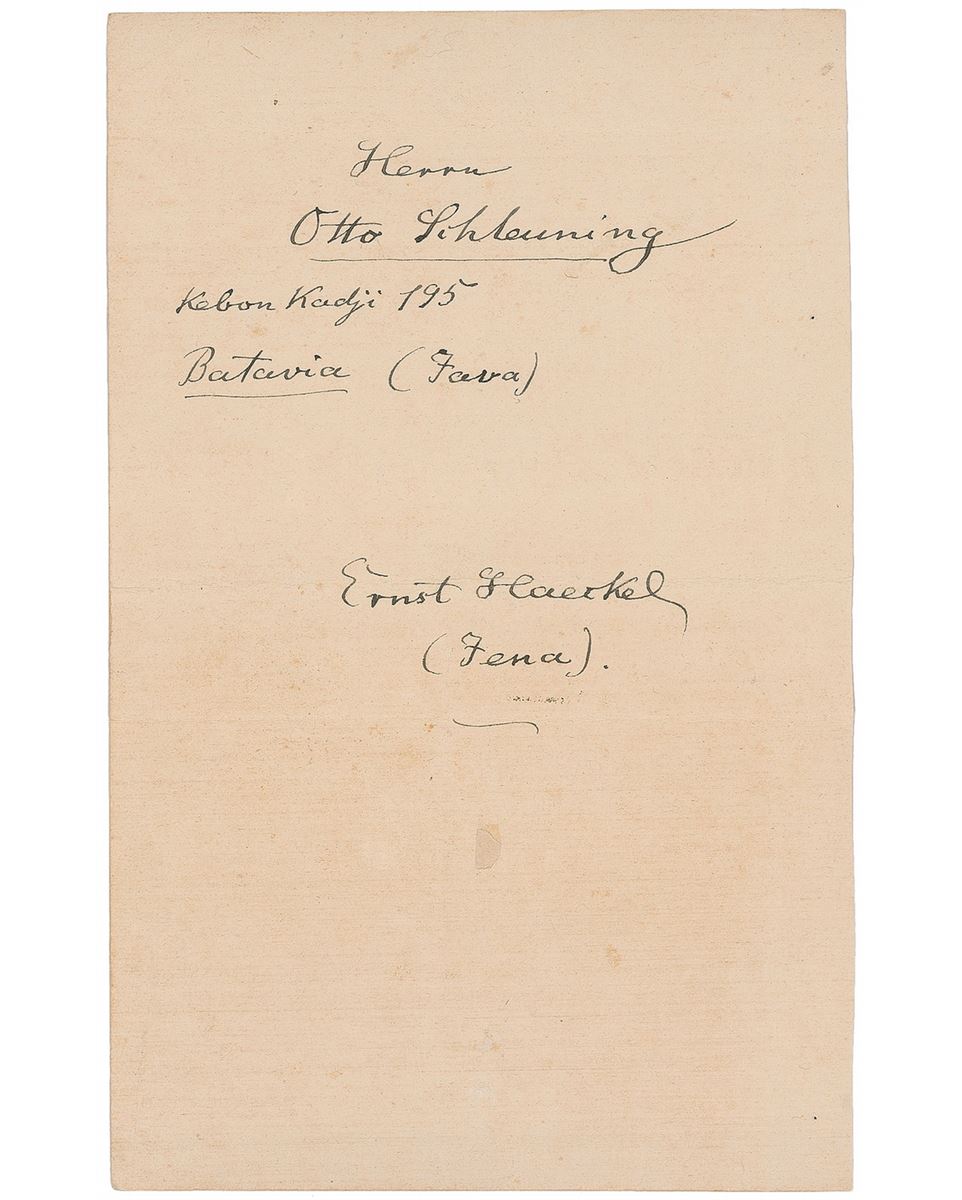 Herrn
Otto Schleuning
Kebon Kadji 195
Batavia (Java)
Ernst Haeckel
(Jena).